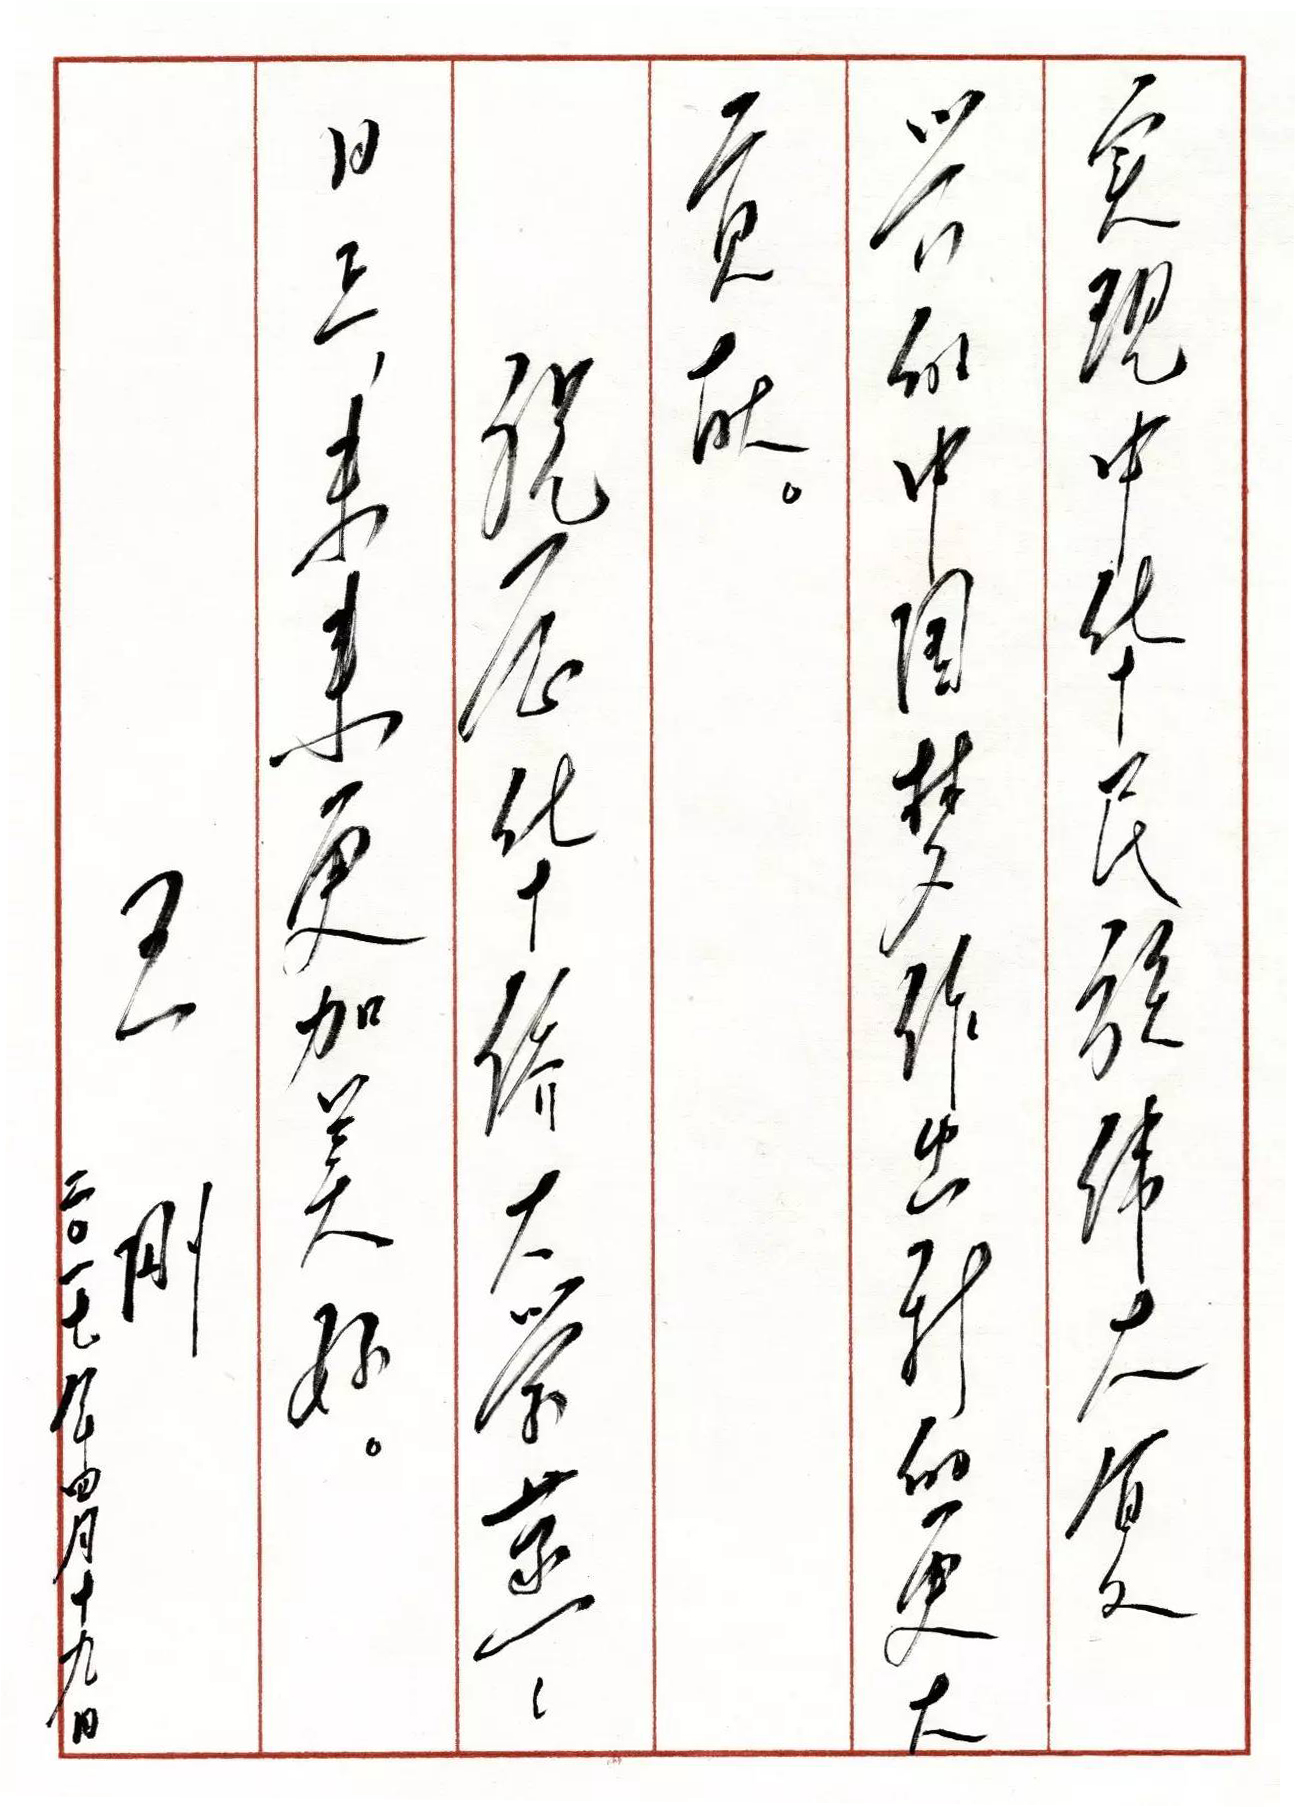 实现中华民族伟大复
兴的中国梦作出新的更大
贡献。
祝愿华侨大学蒸〻
日上，未来更加美好。
王刚
二〇一七年四月十九日